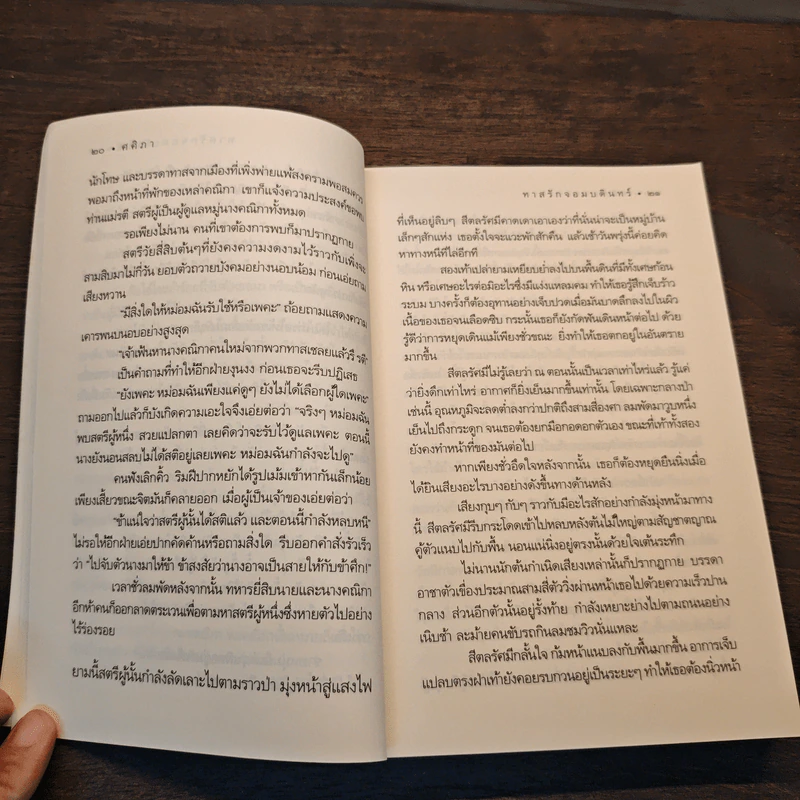 ๒๐ • ศศิภา
นักโทษ และบรรดาทาสจากเมืองที่เพิ่งพ่ายแพ้สงครามพอสมควร
พอมาถึงหน้าที่พักของเหล่าคณิกา เขาก็แจ้งความประสงค์ขอพบ
ท่านแม่รตี สตรีผู้เป็นผู้ดูแลหมู่นางคณิกาทั้งหมด
รอเพียงไม่นาน คนที่เขาต้องการพบก็มาปรากฏกาย
สตรีวัยสี่สิบต้นๆที่ยังคงความงดงามไว้ราวกับเพิ่งจะ
สามสิบมาไม่กี่วัน ยอบตัวถวายบังคมอย่างนอบน้อม ก่อนเอ่ยถาม
เสียงหวาน
“มีสิ่งใดให้หม่อมฉันรับใช้หรือเพคะ” ถ้อยถามแสดงความ
เคารพนบนอบอย่างสูงสุด
“เจ้าเฟ้นหานางคณิกาคนใหม่จากพวกทาสเชลยแล้วรึ รตี”
เป็นคำถามที่ทำให้อีกฝ่ายงุนงง ก่อนเธอจะรีบปฏิเสธ
“ยังเพคะ หม่อมฉันเพียงแค่ดูๆ ยังไม่ได้เลือกผู้ใดเพคะ”
ถามออกไปแล้วก็บังเกิดความเอะใจจึงเอ่ยต่อว่า “จริงๆ หม่อมฉัน
พบสตรีผู้หนึ่ง สวยแปลกตา เลยคิดว่าจะรับไว้ดูแลเพคะ ตอนนี้
นางยังนอนสลบไม่ได้สติอยู่เลยเพคะ หม่อมฉันกำลังจะไปดู”
คนฟังเลิกคิ้ว ริมฝีปากหยักได้รูปเม้มเข้าหากันเล็กน้อย
เพียงเสี้ยวขณะจิตมันก็คลายออก เมื่อผู้เป็นเจ้าของเอ่ยต่อว่า
“ข้าแน่ใจว่าสตรีผู้นั้นได้สติแล้ว และตอนนี้กำลังหลบหนี”
ไม่รอให้อีกฝ่ายเอ่ยปากคัดค้านหรือถามสิ่งใด รีบออกคำสั่งรัวเร็ว
ว่า “ไปจับตัวนางมาให้ข้า ข้าสงสัยว่านางอาจเป็นสายให้กับข้าศึก!”
เวลาชั่วลมพัดหลังจากนั้น ทหารยี่สิบนายและนางคณิกา
อีกห้าคนก็ออกลาดตระเวนเพื่อตามหาสตรีผู้หนึ่งซึ่งหายตัวไปอย่าง
ไร้ร่องรอย
ยามนี้สตรีผู้นั้นกำลังลัดเลาะไปตามราวป่า มุ่งหน้าสู่แสงไฟ
ทาสรักจอมบดินทร์ • ๒๑
ที่เห็นอยู่ลิบๆ สีตลรัศมีคาดเดาเอาเองว่าที่นั่นน่าจะเป็นหมู่บ้าน
เล็กๆสักแห่ง เธอตั้งใจจะแวะพักสักคืน แล้วเช้าวันพรุ่งนี้ค่อยคิด
หาทางหนีทีไล่อีกที
สองเท้าเปล่ายามเหยียบย่ำลงไปบนพื้นดินที่มีทั้งเศษก้อน
หิน หรือเศษอะไรต่อมิอะไรซึ่งมีแง่งแหลมคม ทำให้เธอรู้สึกเจ็บร้าว
ระบม บางครั้งก็ต้องอุทานอย่างเจ็บปวดเมื่อมันบาดลึกลงไปในผิว
เนื้อของเธอจนเลือดซิบ กระนั้นเธอก็ยังกัดฟันเดินหน้าต่อไป ด้วย
รู้ดีว่าการหยุดเดินแม้เพียงชั่วขณะ ยิ่งทำให้เธอตกอยู่ในอันตราย
มากขึ้น
สีตลรัศมีไม่รู้เลยว่า ณ ตอนนั้นเป็นเวลาเท่าไหร่แล้ว รู้แค่
ว่ายิ่งดึกเท่าไหร่ อากาศก็ยิ่งเย็นมากขึ้นเท่านั้น โดยเฉพาะกลางป่า
เช่นนี้ อุณหภูมิจะลดต่ำลงกว่าปกติถึงสามสี่องศา ลมพัดมาวูบหนึ่ง
เย็นไปถึงกระดูก จนเธอต้องยกมือกอดอกตัวเอง ขณะที่เท้าทั้งสอง
ยังคงทำหน้าที่ของมันต่อไป
หากเพียงชั่วอึดใจหลังจากนั้น เธอก็ต้องหยุดยืนนิ่งเมื่อ
ได้ยินเสียงอะไรบางอย่างดังขึ้นทางด้านหลัง
เสียงกุบๆ กับๆ ราวกับมีอะไรสักอย่างกำลังมุ่งหน้ามาทาง
นี้ สีตลรัศมีรีบกระโดดเข้าไปหลบหลังต้นไม้ใหญ่ตามสัญชาตญาณ
คู้ตัวแนบไปกับพื้น นอนแน่นิ่งอยู่ตรงนั้นด้วยใจเต้นระทึก
ไม่นานนักต้นกำเนิดเสียงเหล่านั้นก็ปรากฏกาย บรรดา
อาชาตัวเขื่องประมาณสามสี่ตัววิ่งผ่านหน้าเธอไปด้วยความเร็วปาน
กลาง ส่วนอีกตัวนั้นอยู่รั้งท้าย กำลังเหยาะย่างไปตามถนนอย่าง
เนิบช้า ละม้ายคนขับรถกินลมชมวิวนั่นแหละ
สีตลรัศมีกลั้นใจ ก้มหน้าแนบลงกับพื้นมากขึ้น อาการเจ็บ
แปลบตรงฝ่าเท้ายังคอยรบกวนอยู่เป็นระยะๆ ทำให้เธอต้องนิ่วหน้า